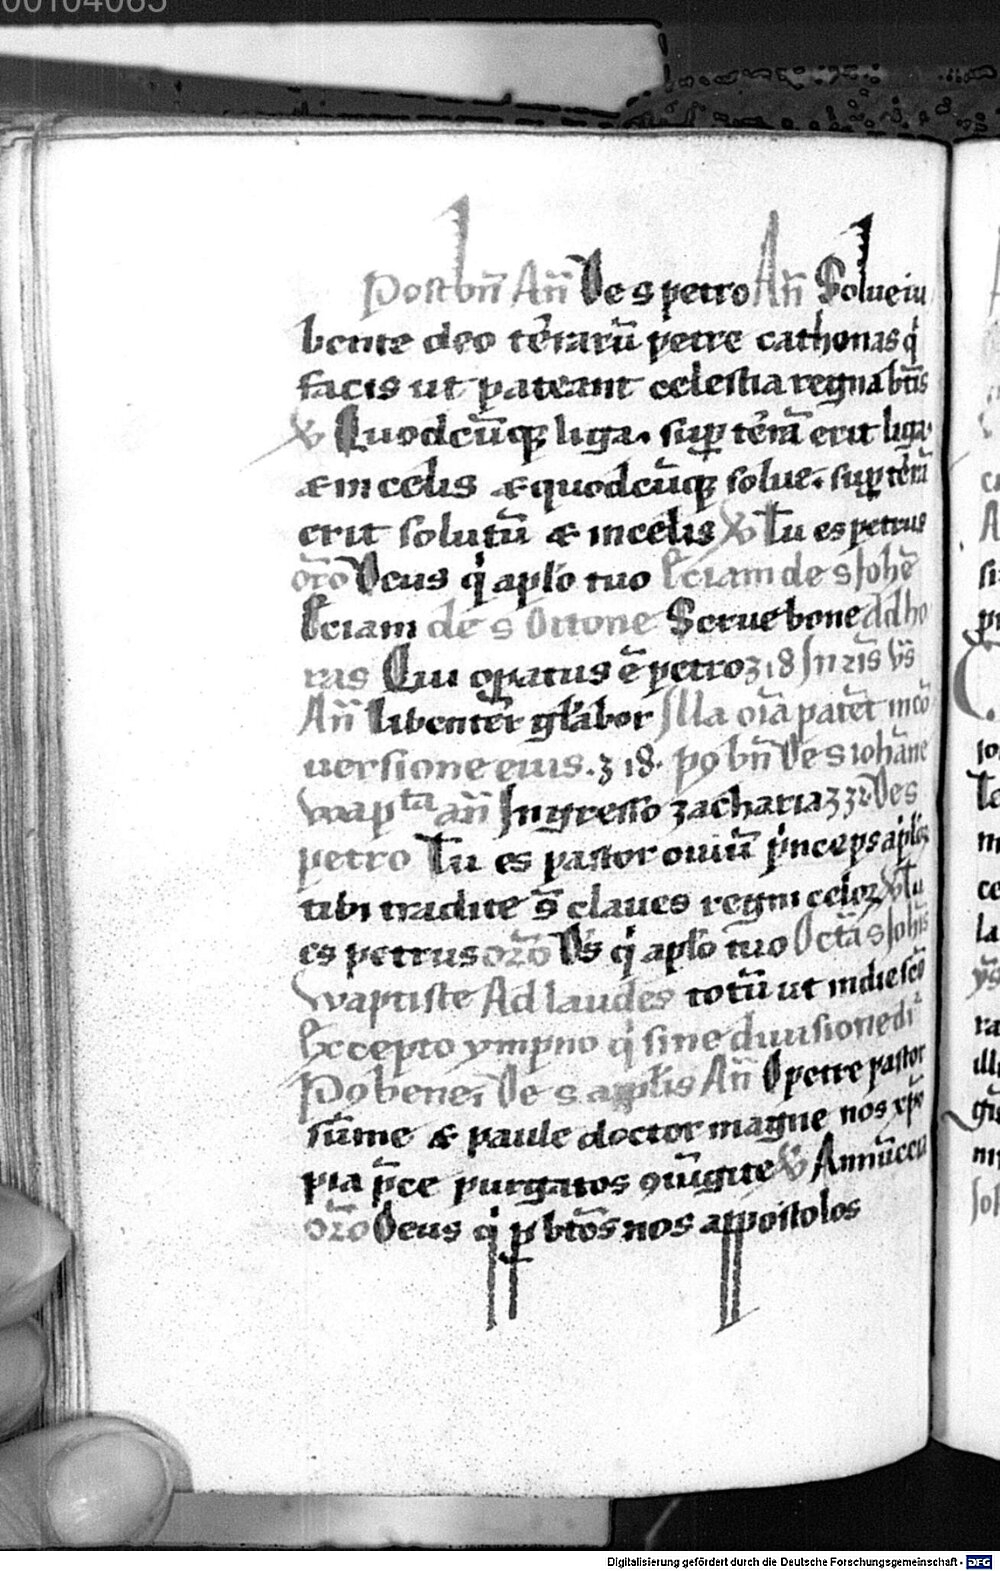 00104065
Postbn̄ Añ De s petro Añ Solue iu
bente deo terrarū petre cathenas q̇
facis ut pateant celestia regna bt̄is
℣ Quodcūq; liga. sup terrā erit liga.
& in celis & quodcūq; solue. sup terrā
erit solutū & in celis ℣ Tu es petrus
or̄o Deus q̇ aplo tuo Eciam de s Johē
Eciam de s Ottone Serue bone ad ho
ras Qui opatus ē petro
Añ libenter glabor Illa oīa patet in cō
uersione eius. po bn̄ De s iohāne
wapta añ Ingresso zacharia De s
petro Tu es pastor ouiū p̄nceps aplo
tibi tradite s̄ claues regni celoꝝ ℣ Tu
es petrus or̄o Ds̄ q̇ aplo tuo Octā s Johis
waptiste Ad laudes totū ut in die scō
Eccepto ympno q̇ sine diuisione dr
Po bene. De s aplis Añ O petre pastor
sūme & paule doctor magne nos xp̄o
pia p̄ce purgatos ꝯiūgite ℣ Annūccia
or̄o Deus q̇ p bt̄os nos appostolos
Digitalisierung gefördert durch die Deutsche Forschungsgemeinschaft - DFG